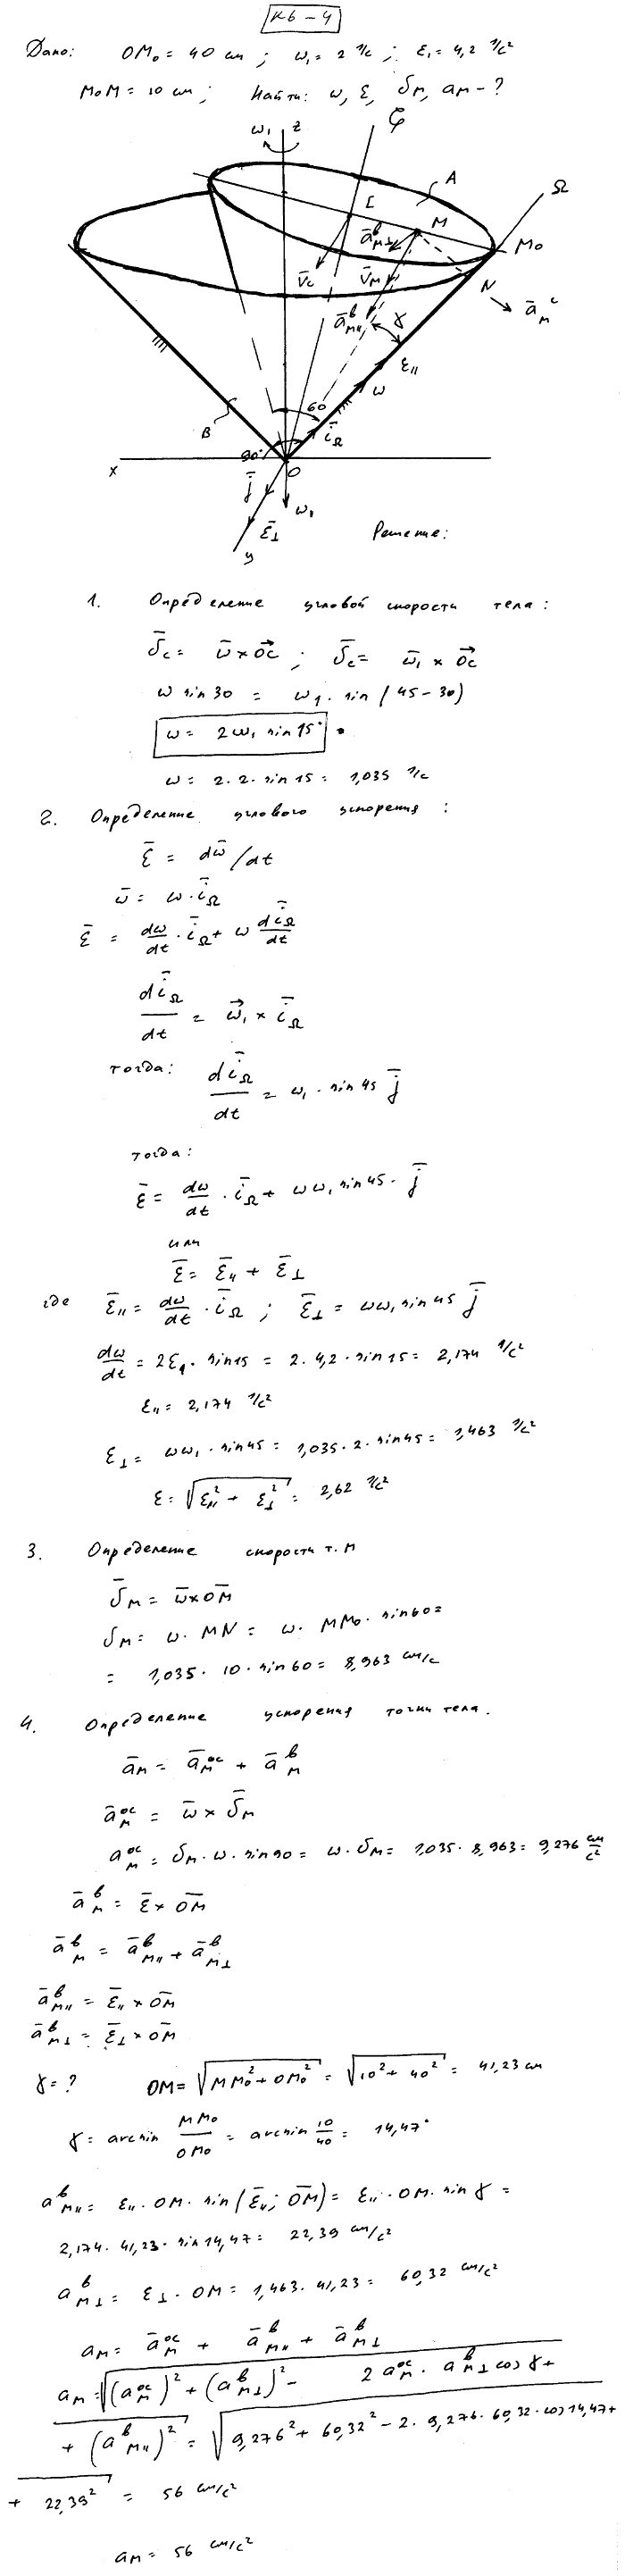 К6-4
Дано: OM₀ = 40 см ; ω₁ = 2 1/с ; ε₁ = 4,2 1/с²
M₀M = 10 см ; Найти: ω, ε, υм, aм - ?
ω₁ z ζ
A Ω
C M M₀
a̅ᵇм⊥
V̅c V̅м N
a̅ᵇм॥ γ a̅мᶜ
ε॥
60 ω
B
90° i̅Ω
x O
j̅ ω₁
ε̅⊥
y
Решение:
1. Определение угловой скорости тела :
υ̅c = ω̅ × O͞C ; υ̅c = ω̅₁ × O͞C
ω sin 30 = ω₁ · sin (45 - 30)
ω = 2ω₁ sin 15° .
ω = 2 · 2 · sin 15 = 1,035 1/с
2. Определение углового ускорения :
ε̅ = dω̅ / dt
ω̅ = ω · i̅Ω
ε̅ = dω/dt · i̅Ω + ω di̅Ω/dt
di̅Ω/dt = ω⃗₁ × i̅Ω
тогда: di̅Ω/dt = ω₁ · sin 45 j̅
тогда:
ε̅ = dω/dt · i̅Ω + ωω₁ sin 45 · j̅
или
ε̅ = ε̅॥ + ε̅⊥
где ε̅॥ = dω/dt · i̅Ω ; ε̅⊥ = ωω₁ sin 45 j̅
dω/dt = 2ε₁ · sin 15 = 2 · 4,2 · sin 15 = 2,174 1/с²
ε॥ = 2,174 1/с²
ε⊥ = ωω₁ · sin 45 = 1,035 · 2 · sin 45 = 1,463 1/с²
ε = √(ε॥² + ε⊥²) = 2,62 1/с²
3. Определение скорости т. М
υ̅м = ω̅ × O͞M
υм = ω · MN = ω · MM₀ · sin 60 =
= 1,035 · 10 · sin 60 = 8,963 см/с
4. Определение ускорения точки тела.
a̅м = a̅мᵒᶜ + a̅мᵇ
a̅мᵒᶜ = ω̅ × υ̅м
aмᵒᶜ = υм · ω · sin 90 = ω · υм = 1,035 · 8,963 = 9,276 см/с²
a̅мᵇ = ε̅ × O͞M
a̅мᵇ = a̅ᵇм॥ + a̅ᵇм⊥
a̅ᵇм॥ = ε̅॥ × O͞M
a̅ᵇм⊥ = ε̅⊥ × O͞M
γ = ? OM = √(MM₀² + OM₀²) = √(10² + 40²) = 41,23 см
γ = arcsin MM₀/OM₀ = arcsin 10/40 = 14,47°
aᵇм॥ = ε॥ · OM · sin (ε̅॥ ; O͞M) = ε॥ · OM · sin γ =
2,174 · 41,23 · sin 14,47 = 22,39 см/с²
aᵇм⊥ = ε⊥ · OM = 1,463 · 41,23 = 60,32 см/с²
aм = a̅мᵒᶜ + a̅ᵇм॥ + a̅ᵇм⊥
aм = √(aмᵒᶜ)² + (aᵇм⊥)² - 2 aмᵒᶜ · aᵇм⊥ cos γ +
+ (aᵇм॥)² = √9,276² + 60,32² - 2 · 9,276 · 60,32 · cos 14,47 +
+ 22,39² = 56 см/с²
aм = 56 см/с²